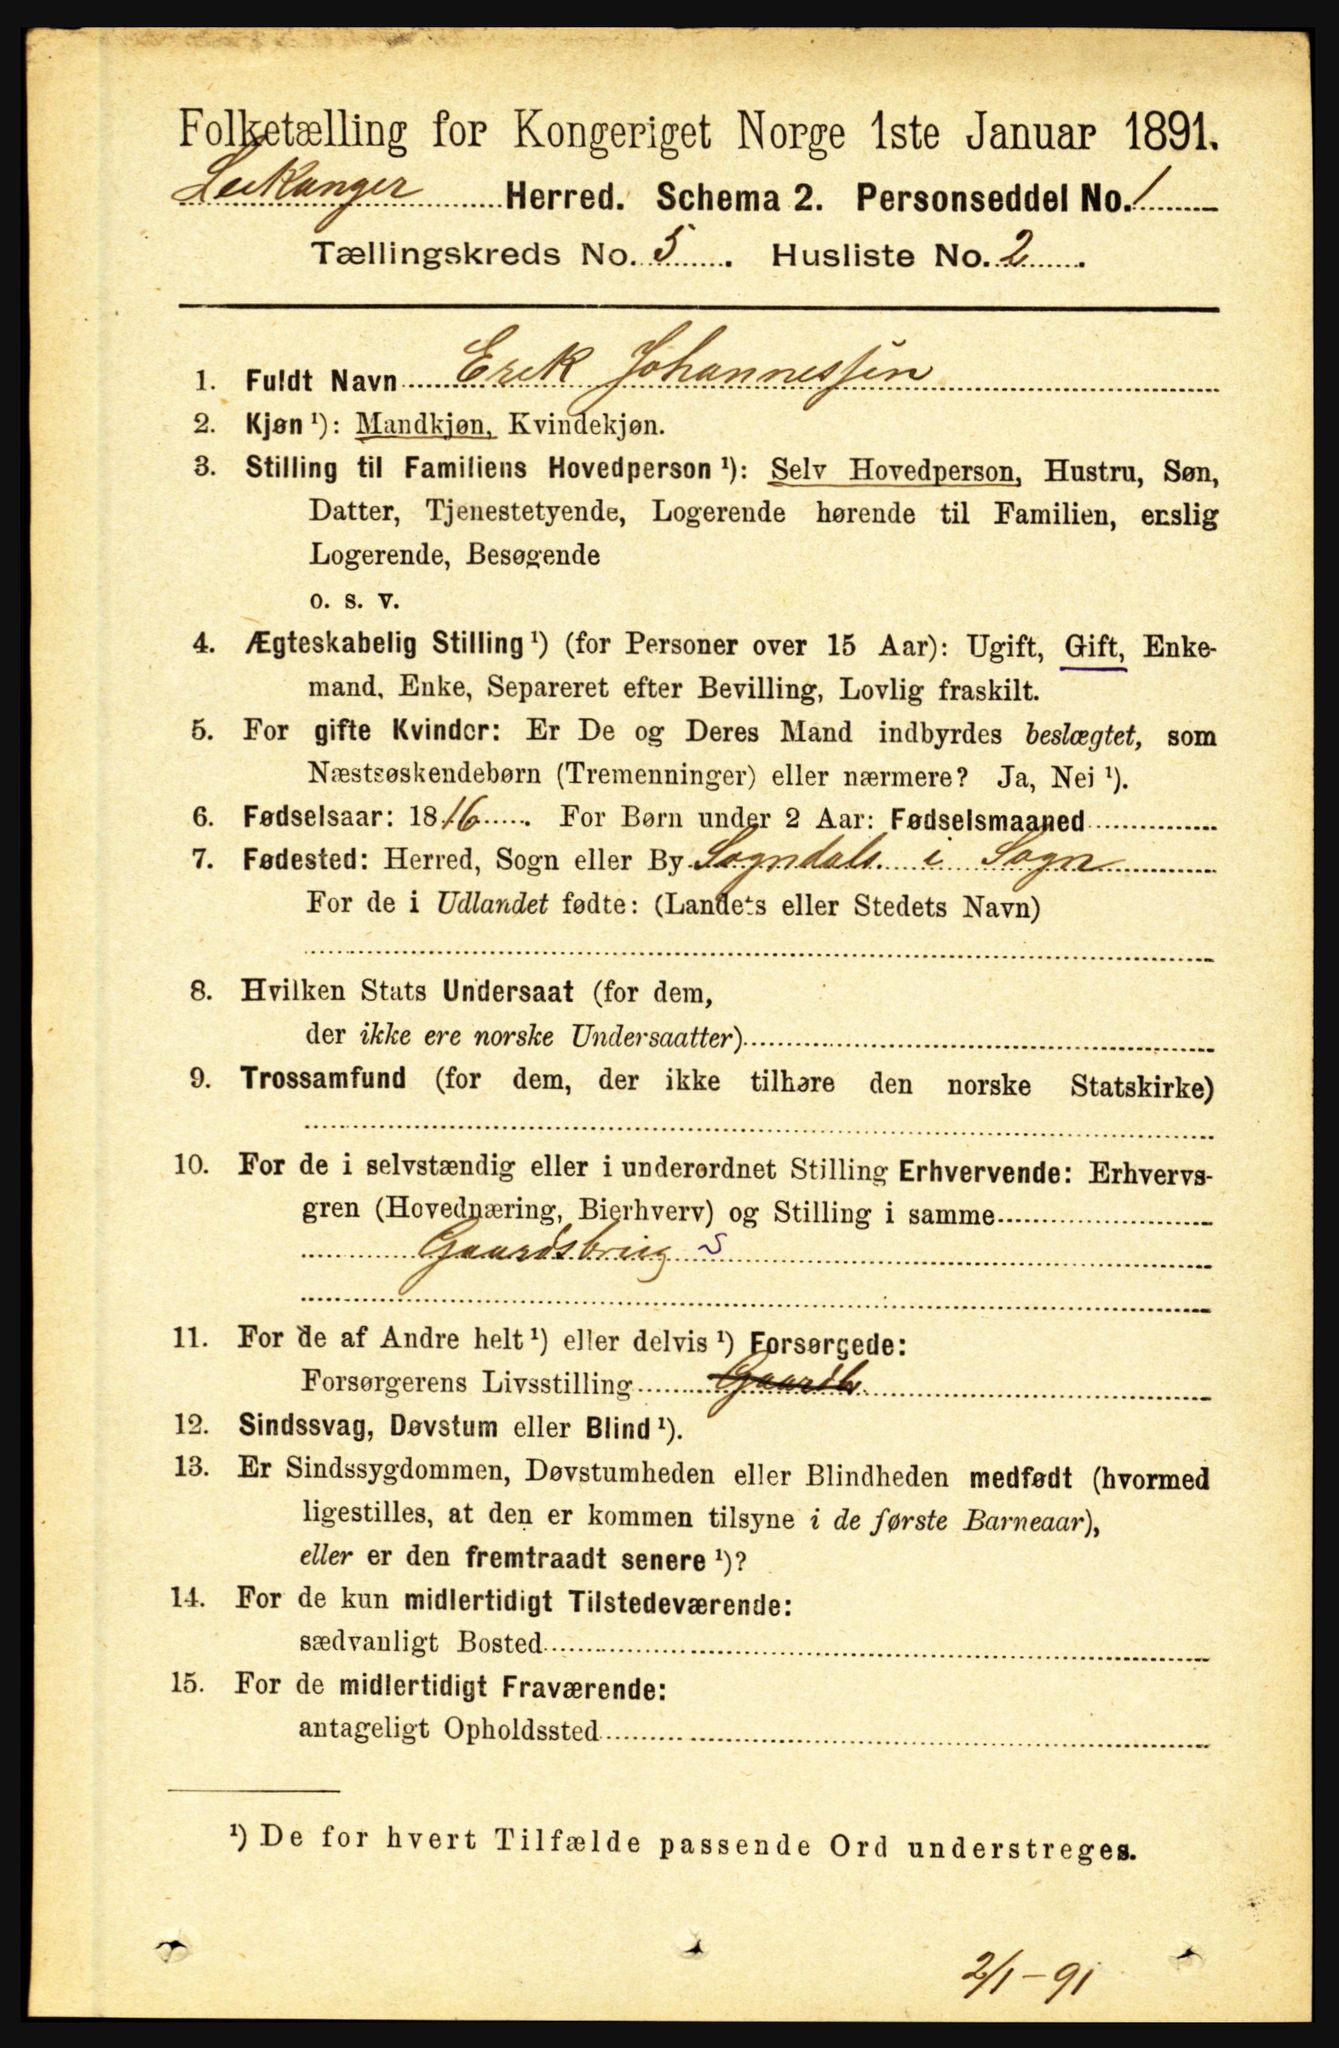 Folketælling for Kongeriget Norge 1ste Januar 1891.
Leikanger Herred. Schema 2. Personseddel No. 1
Tællingskreds No. 5. Husliste No. 2.
1. Fuldt Navn Erik Johannessen
2. Kjøn ¹): Mandkjøn, Kvindekjøn.
3. Stilling til Familiens Hovedperson ¹): Selv Hovedperson, Hustru, Søn,
Datter, Tjenestetyende, Logerende hørende til Familien, enslig
Logerende, Besøgende
o. s. v.
4. Ægteskabelig Stilling ¹) (for Personer over 15 Aar): Ugift, Gift, Enke-
mand, Enke, Separeret efter Bevilling, Lovlig fraskilt.
5. For gifte Kvinder: Er De og Deres Mand indbyrdes beslægtet, som
Næstsøskendebørn (Tremenninger) eller nærmere? Ja, Nei ¹).
6. Fødselsaar: 1816. For Børn under 2 Aar: Fødselsmaaned
7. Fødested: Herred, Sogn eller By Sogndals i Sogn
For de i Udlandet fødte: (Landets eller Stedets Navn)
8. Hvilken Stats Undersaat (for dem,
der ikke ere norske Undersaatter)
9. Trossamfund (for dem, der ikke tilhøre den norske Statskirke)
10. For de i selvstændig eller i underordnet Stilling Erhvervende: Erhvervs-
gren (Hovednæring, Bierhverv) og Stilling i samme
Gaardsbrug S
11. For de af Andre helt ¹) eller delvis ¹) Forsørgede:
Forsørgerens Livsstilling Gaardb
12. Sindssvag, Døvstum eller Blind ¹).
13. Er Sindssygdommen, Døvstumheden eller Blindheden medfødt (hvormed
ligestilles, at den er kommen tilsyne i de første Barneaar),
eller er den fremtraadt senere ¹)?
14. For de kun midlertidigt Tilstedeværende:
sædvanligt Bosted
15. For de midlertidigt Fraværende:
antageligt Opholdssted
¹) De for hvert Tilfælde passende Ord understreges.
2/1-91